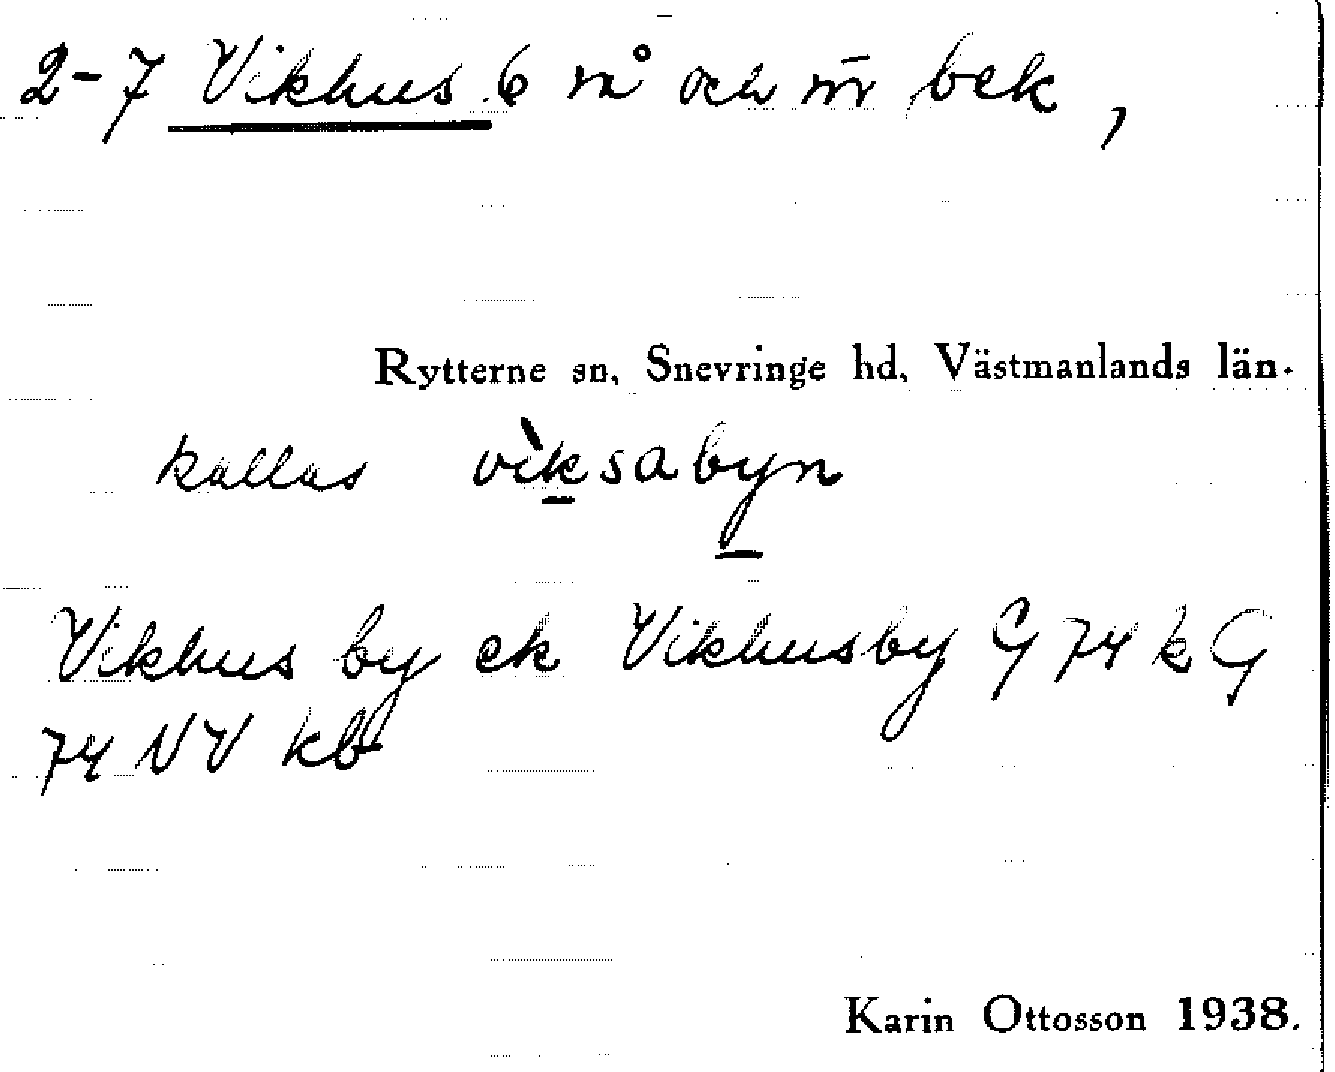 2-7 Vikhus 6 må och mr bek,
Rytterne sn, Snevringe hd, Västmanlands län.
kallas vìksabyn
Vikhus by ek Vikhusby G 74 k G
74 NV kb
Karin Ottosson 1938.